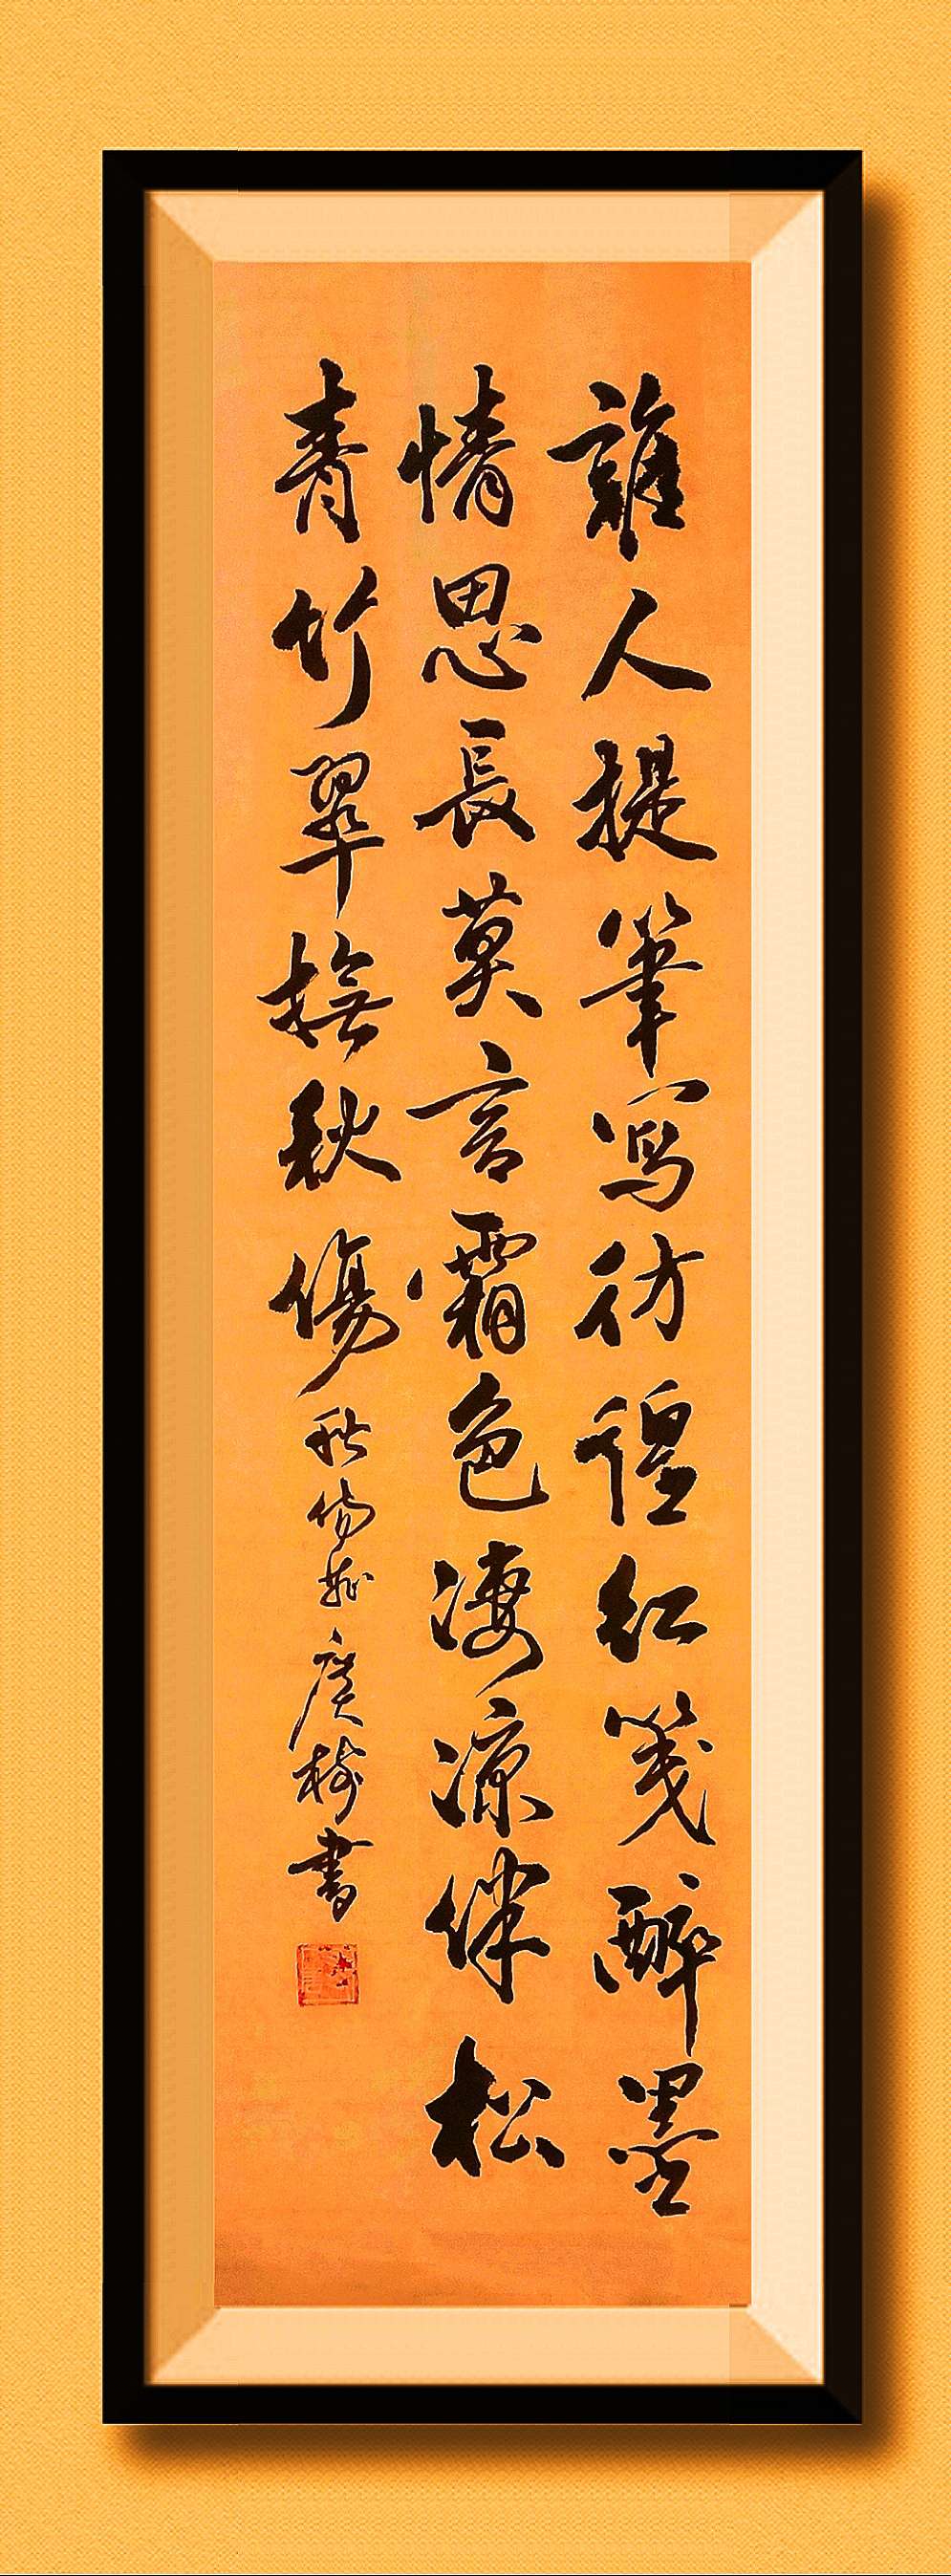 誰人提筆寫彷徨紅箋醉墨
情思長莫言霜色淒涼伴松
青竹翠撫秋傷 秋傷 廣樹書